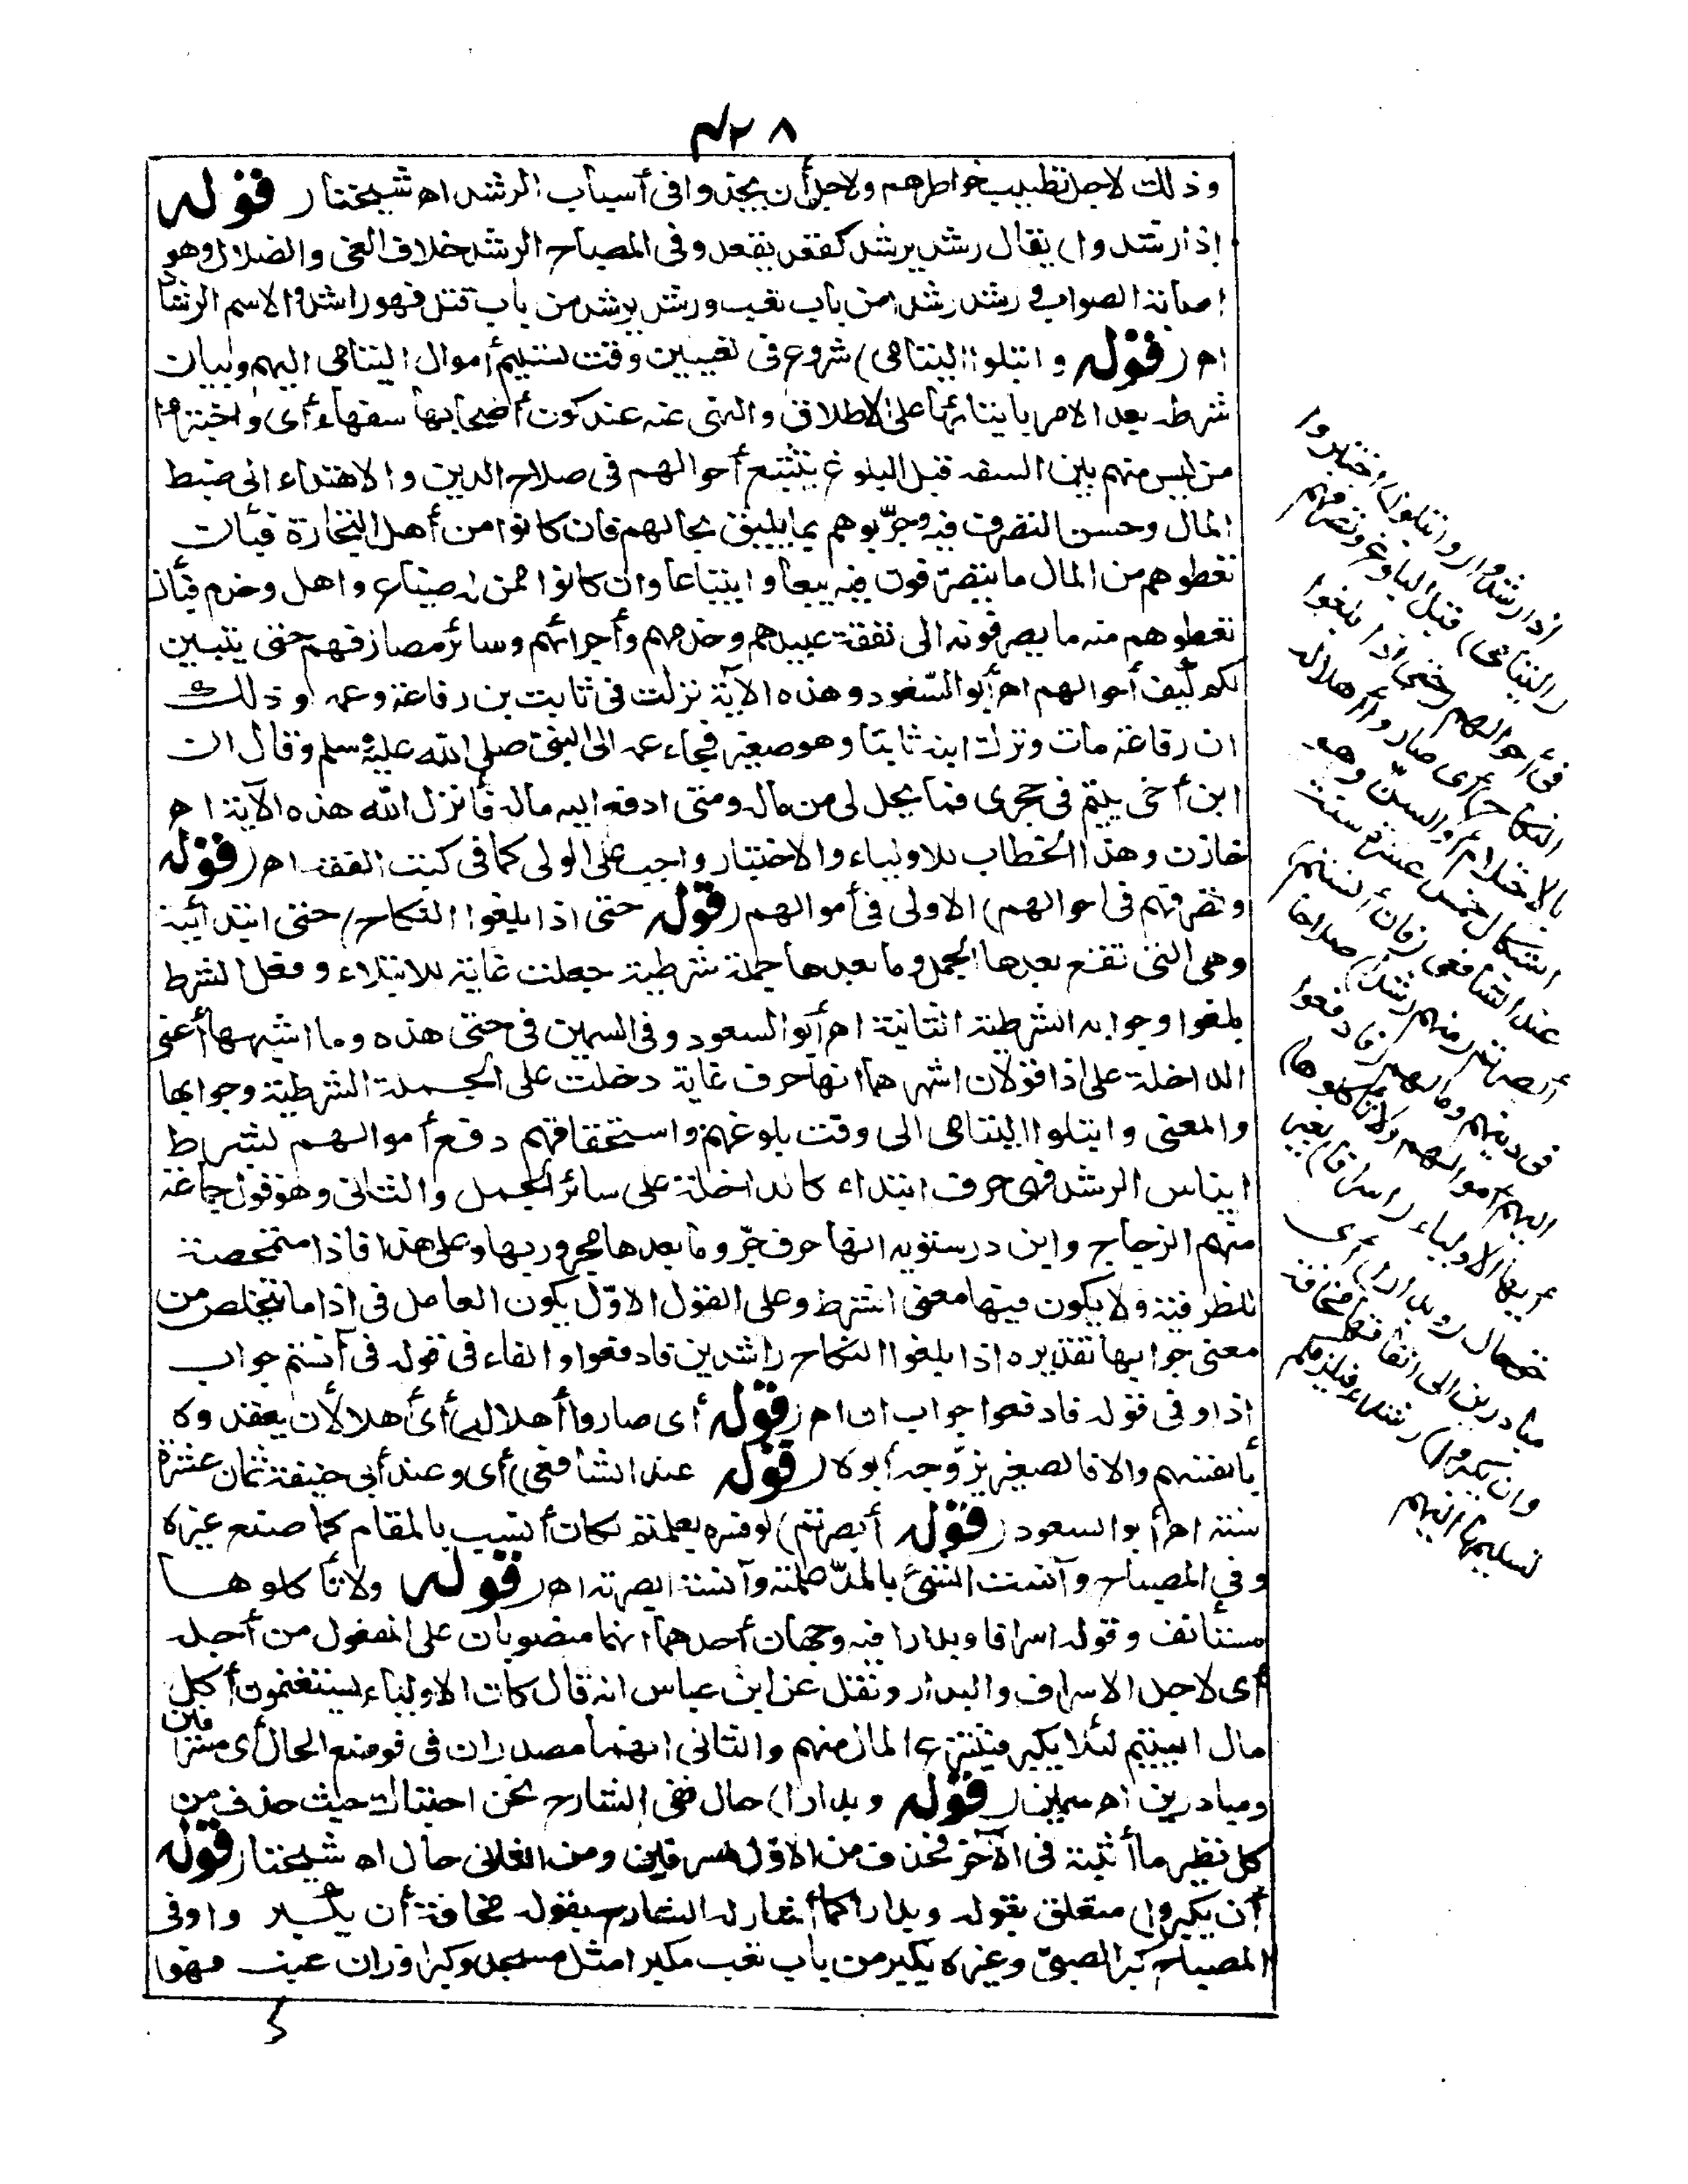 ٤٢٨
وذلك لاجل تطييب خواطرهم ولاجل أن يجدوا في أسباب الرشد اه شيخنا (قوله
إذا رشدوا) يقال رشد يرشد كقعد يقعد وفي المصباح الرشد خلاف الغي والضلال وهو
إصابة الصواب ورشد رشدا من باب تعب ورشد يرشد من باب قتل فهو راشد والاسم الرشاد
اه (قوله وابتلوا اليتامى) شروع في تعيين وقت تسليم أموال اليتامى اليهم وبيان
شرطه بعد الامر بايتائها على الاطلاق والنهي عنه عند كون أصحابها سفهاء أي واختبروا
من ليس منهم بين السفه قبل البلوغ بتتبع أحوالهم في صلاح الدين والاهتداء الى ضبط
المال وحسن التصرف فيه وجرّبوهم بما يليق بحالهم فان كانوا من أهل التجارة فبأن
تعطوهم من المال ما يتصرّفون فيه بيعا وابتياعا وان كانوا ممن له ضياع واهل وخدم فبأن
تعطوهم منه ما يصرفونه الى نفقة عبيدهم وخدمهم وأجرائهم وسائر مصارفهم حتى يتبين
لكم كيف أحوالهم اه أبو السعود وهذه الآية نزلت في ثابت بن رفاعة وعمه وذلك
ان رفاعة مات وترك ابنه ثابتا وهو صغير فجاء عمه الى النبي صلى الله عليه وسلم وقال ان
ابن أخي يتيم في حجري فما يحل لي من ماله ومتى ادفع اليه ماله فأنزل الله هذه الآية اه
خازن وهذا الخطاب للاولياء والاختبار واجب على الولي كما في كتب الفقه اه (قوله
وتصرفهم في احوالهم) الاولى في أموالهم (قوله حتى اذا بلغوا النكاح) حتى ابتدائية
وهي التي تقع بعدها الجمل وما بعدها جملة شرطية جعلت غاية للابتلاء وفعل الشرط
بلغوا وجوابه الشرطية الثانية اه أبو السعود وفي السمين في حتى هذه وما اشبهها أعني
الداخلة على اذا قولان اشهرهما انها حرف غاية دخلت على الجملة الشرطية وجوابها
والمعنى وابتلوا اليتامى الى وقت بلوغهم واستحقاقهم دفع أموالهم بشرط
ايناس الرشد فهي حرف ابتداء كالداخلة على سائر الجمل والثاني وهو قول جماعة
منهم الزجاج وابن درستويه انها حرف جرّ وما بعدها مجرور بها وعلى هذا فاذا متمحضة
للظرفية ولا يكون فيها معنى الشرط وعلى القول الاوّل يكون العامل في اذا ما يتخلص من
معنى جوابها تقديره اذا بلغوا النكاح راشدين فادفعوا والفاء في قوله في آنستم جواب
اذا وفي قوله فادفعوا جواب ان اه (قوله أي صاروا أهلا له) أي أهلا لأن يعقدوه
بأنفسهم والا فالصغير يزوّجه أبوه (قوله عند الشافعي) أي وعند أبي حنيفة ثمان عشرة
سنة اه أبو السعود (قوله أبصرتم) لو فسره بعلمتم لكان أنسب بالمقام كما صنع غيره
وفي المصباح وآنست الشئ بالمدّ علمته وآنسته ابصرته اه (قوله ولا تأكلوها
مستأنف وقوله اسرافا وبدارا فيه وجهان أحدهما انهما منصوبان على المفعول من أجله
أي لاجل الاسراف والبدار ونقل عن ابن عباس انه قال كان الاولياء يستغنمون أكل
مال اليتيم لئلا يكبر فينتزع المال منهم والثاني انهما مصدران في موضع الحال أي مسرفين
ومبادرين اه سمين (قوله وبدارا) حال ففي الشارح نحن احتباك حيث حذف من
كل نظير ما أثبته في الآخر فحذف من الاوّل مسرفين ومن الثاني حال اه شيخنا (قوله
أن يكبروا) متعلق بقوله وبدارا كما أشار له الشارح بقوله مخافة أن يكبروا وفي
المصباح كبر الصبيّ وغيره يكبر من باب تعب مكبرا مثل مسجد وكبرا وزان عنب فهو
اذا رشدوا (وابتلوا) اختبروا
(اليتامى) قبل البلوغ وتصرفهم
في أحوالهم (حتى اذا بلغوا
النكاح) أي صاروا أهلا له
بالاحتلام أو السنّ وهو
استكمال خمس عشرة سنة
عند الشافعي (فان آنستم)
أبصرتم (منهم رشدا) صلاحا
في دينهم ومالهم (فادفعوا
اليهم أموالهم ولا تأكلوها)
أيها الاولياء (اسرافا) بغير
حق حال (وبدارا) أي
مبادرين الى انفاقها مخافة
(أن يكبروا) رشداء فيلزمكم
تسليمها اليهم